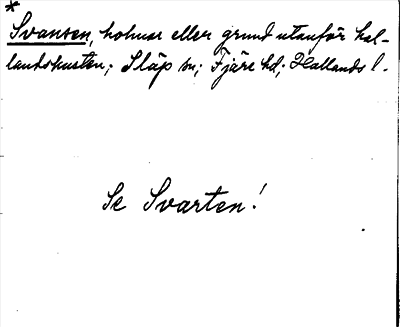 *
Svansen, holme eller grund utanför hal-
landskusten; Släp sn; Fjäre hd; Hallands l.
Se Svarten!